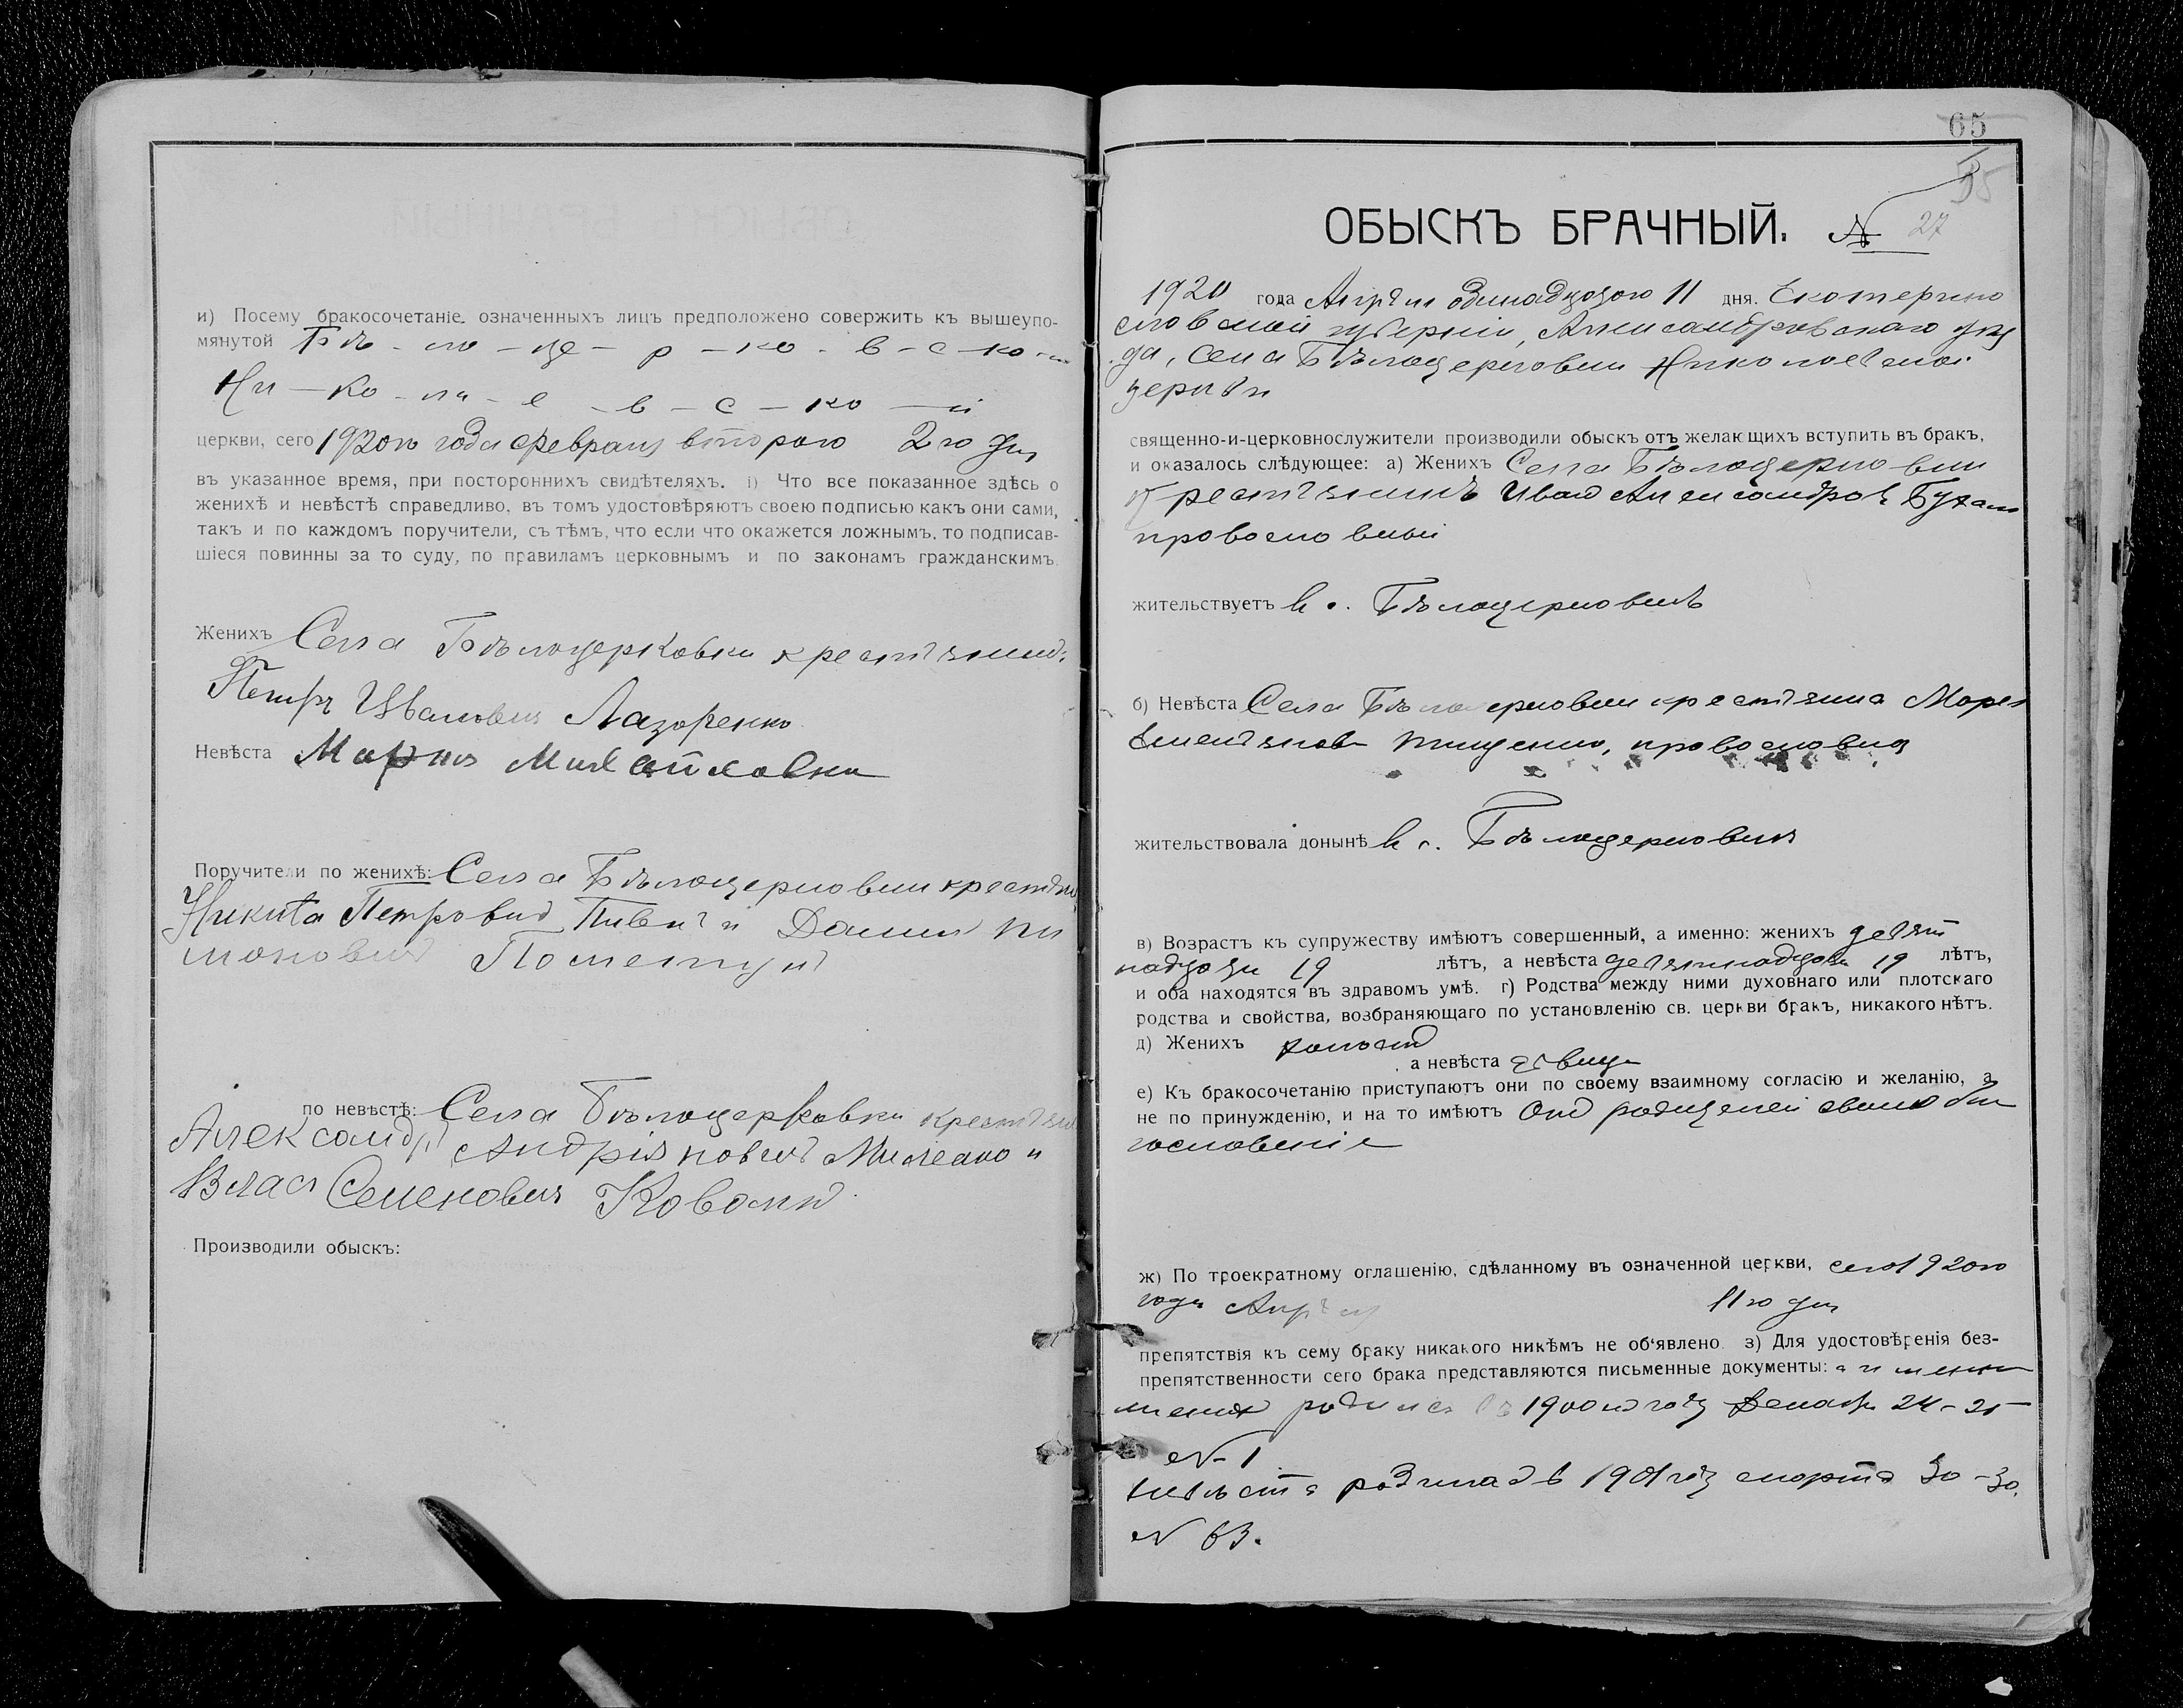 и) Посему бракосочетаніе означенныхъ лицъ предположено совержить къ вышеупо-
мянутой Бѣ - ло - це - р - ко - в - с - ко - й
Ни - ко - ла - е - в - с - ко - й
церкви, сего 1920го года февраля второго 2го дня
въ указанное время, при постороннихъ свидѣтеляхъ. і) Что все показанное здѣсь о
женихѣ и невѣстѣ справедливо, въ томъ удостовѣряютъ своею подписью какъ они сами,
такъ и по каждомъ поручители, съ тѣмъ, что если что окажется ложнымъ, то подписав-
шіеся повинны за то суду, по правиламъ церковнымъ и по законамъ гражданскимъ.
Женихъ Села Бѣлоцерковки
Петръ Ивановичъ Лазаренко
Невѣста Мария Михайловна
Поручители по женихѣ: Села Бѣлоцерковки
Никита Петровичъ и
по невѣстѣ: Села Бѣлоцерковки
Александръ и
Власъ Семеновичъ Коваль
Производили обыскъ:
65
ОБЫСКЪ БРАЧНЫЙ. № 27
1920 года Апрѣля одинадцатого 11 дня. Екатерино
славской губерніи, Александровскаго уѣз
да, села Бѣлоцерковки Николаевской
церкви
священно-и-церковнослужители производили обыскъ отъ желающихъ вступить въ бракъ,
и оказалось слѣдующее: а) Женихъ Села Бѣлоцерковки
Иванъ Александровъ
православный
жительствуетъ в с. Бѣлоцерковкѣ
б) Невѣста Села Бѣлоцерковки
Тищенко, православная
жительствовала донынѣ в с. Бѣлоцерковкѣ
в) Возрастъ къ супружеству имѣютъ совершенный, а именно: женихъ девят
надцать 19 лѣтъ, а невѣста девятнадцать 19 лѣтъ,
и оба находятся въ здравомъ умѣ. г) Родства между ними духовнаго или плотскаго
родства и свойства, возбраняющаго по установленію св. церкви бракъ, никакого нѣтъ.
д) Женихъ холостъ
а невѣста девица
е) Къ бракосочетанію приступаютъ они по своему взаимному согласію и желанію, а
не по принужденію, и на то имѣютъ отъ родителей своихъ бла
гословеніе
ж) По троекратному оглашенію, сдѣланному въ означенной церкви, сего 1920го
года Апрѣля 11го дня
препятствія къ сему браку никакого никѣмъ не об'явлено. з) Для удостовѣренія без-
препятственности сего брака представляются письменные документы: а именно
женихъ родился въ 1900м году Декабр. 24-25
№ 1
невѣста родилась в 1901 году марта 30-30.
№ 63.